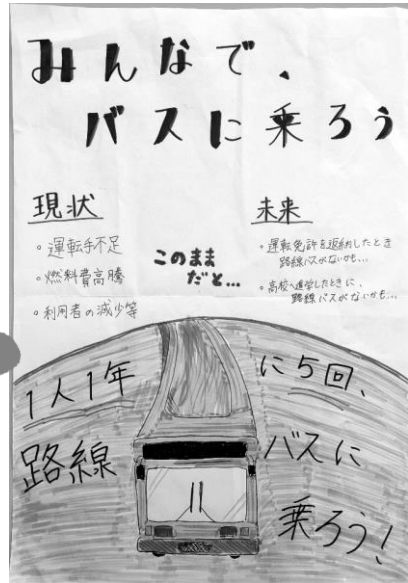 みんなで、
バスに乗ろう
現状
。運転手不足
。燃料費高騰
。利用者の減少等
このまま
だと…
未来
。運転免許を返納したとき
路線バスがないかも…
。高校へ進学したときに、
路線バスがないかも…
1人1年に5回、
路線バスに
乗ろう!